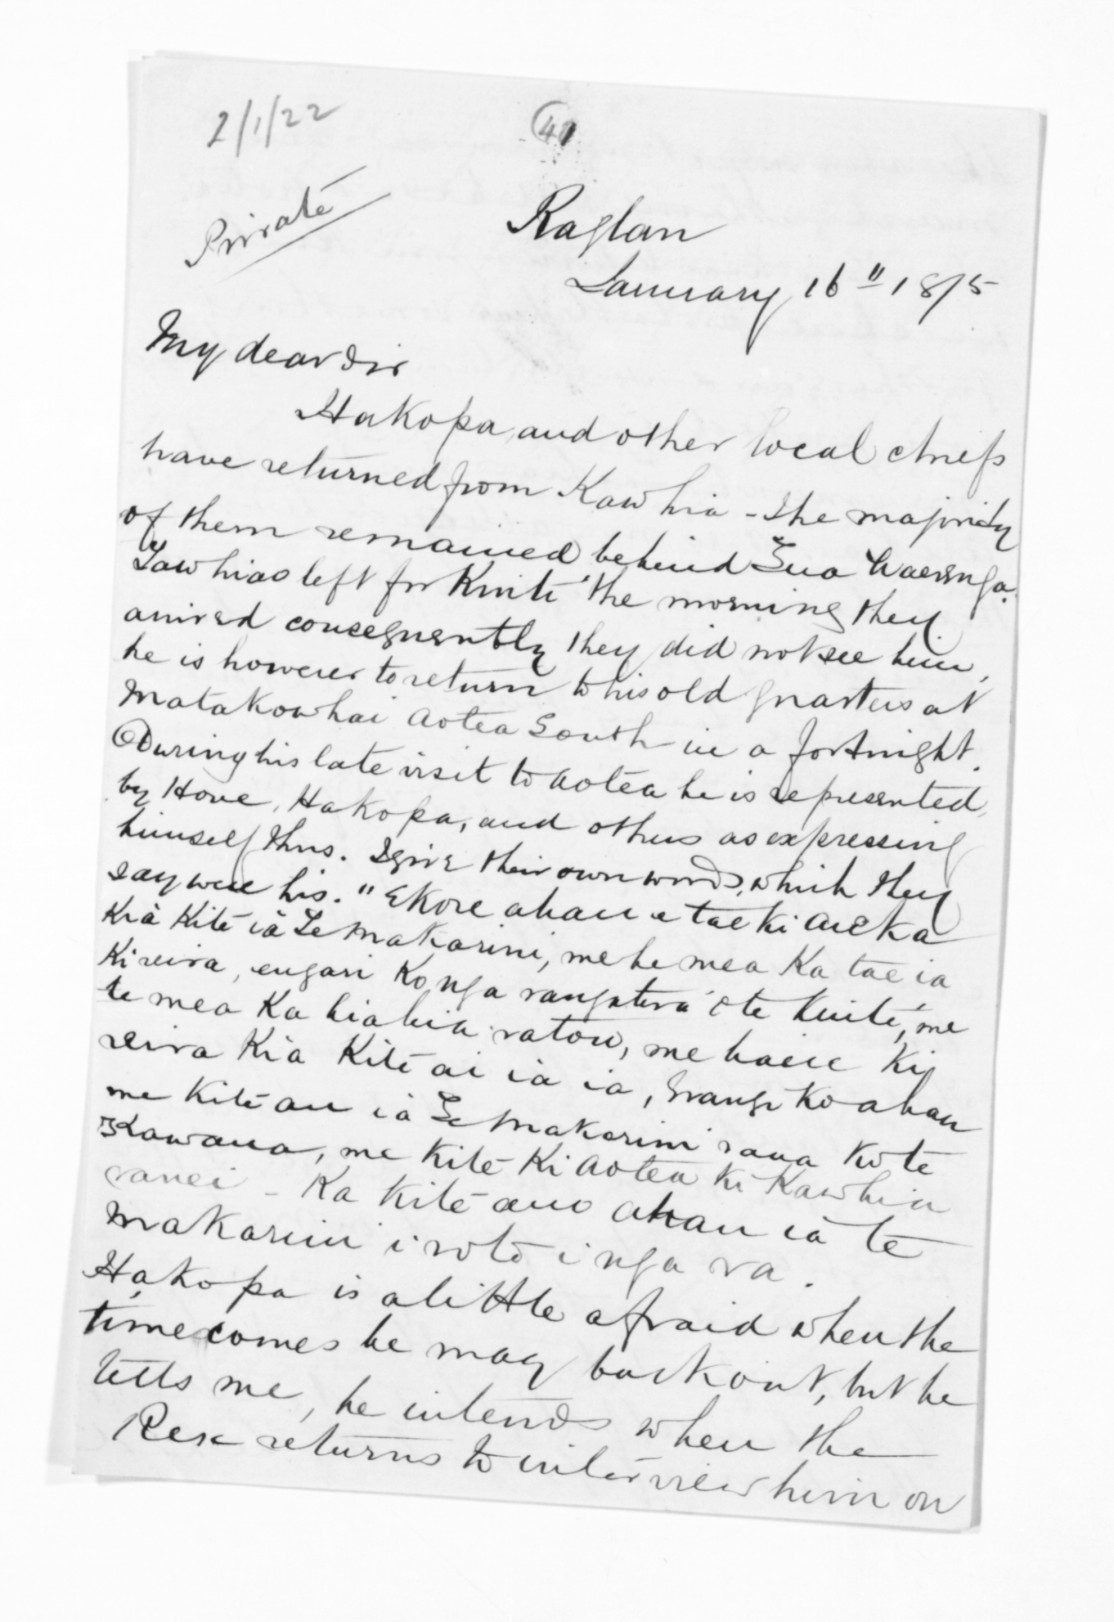 2/1/22
41
Private
Raglan
January 16" 1875
My dear Sir
Hakopa, and other local chiefs
have returned from Kawhia - the majority
of them remained behind
Tawhiao left for Kuiti the morning they
arrived consequently they did not see him,
he is however to return to his old quarters at
Matakowhai Aotea South in a fortnight.
During his late visit to Aotea he is represented,
by Hone, Hakopa, and others as expressing
himself thus. I give their own words, which they
say were his. "Ekore ahau e tae ki
Kia Kite ia Te Makarini, me he mea Ka tae ia
Ki reira, engari Ko nga rangatira o te Kuiti, me
te mea Ka hiahia ratou, me haere Ki
reira Kia Kite ai ia ia, Erangi Ko ahau
me Kite au ia Te Makarini raua Ko te
Kawana, me Kite Ki Aotea Ki Kawhia
ranei - Ka Kite ano ahau ia te
Makarini i roto i nga ra.
Hakopa is a little afraid when the
time comes he may back out, but he
tells me, he intends when the
Rex returns to interview him on